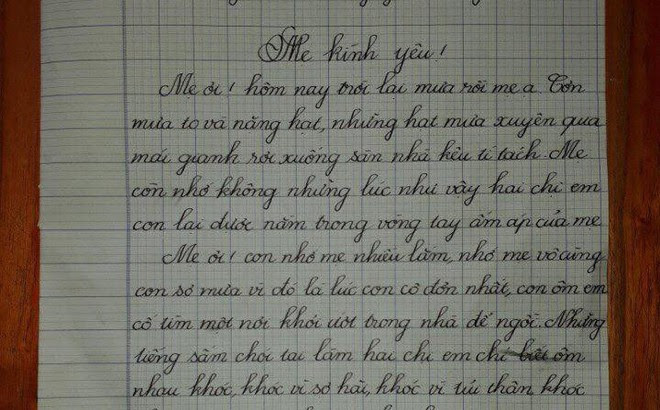 Mẹ kính yêu!
Mẹ ơi! hôm nay trời lại mưa rồi mẹ ạ. Cơn
mưa to và nặng hạt, những hạt mưa xuyên qua
mái gianh rơi xuống sàn nhà kêu tí tách. Mẹ
còn nhớ không những lúc như vậy hai chị em
con lại được nằm trong vòng tay ấm áp của mẹ
Mẹ ơi! con nhớ mẹ nhiều lắm, nhớ mẹ vô cùng
con sợ mưa vì đó là lúc con cô đơn nhất, con ôm em
cố tìm một nơi khỏi ướt trong nhà để ngồi. Những
tiếng sấm chói tai làm hai chị em chỉ biết ôm
nhau khóc, khóc vì sợ hãi, khóc vì tủi thân khóc